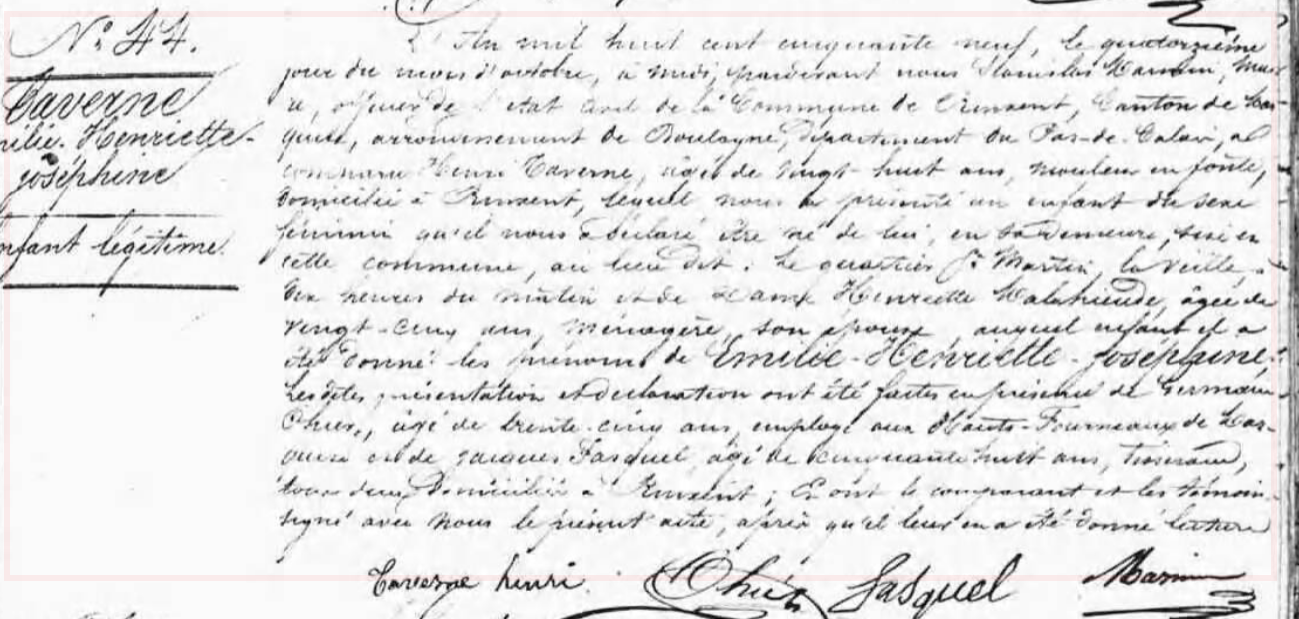 N° 44.
Taverne
Emilie-Henriette-
joséphine
enfant légitime.
L'An mil huit cent cinquante neuf, le quatorzième
jour du mois d'octobre, à midi, pardevant nous Stanislas Mai-
re, officier de l'état civil de la Commune de Rinxent, Canton de Mar-
quise, arrondissement de Boulogne, département du Pas-de-Calais, a
comparu Henri Taverne, âgé de vingt-huit ans, mouleur en fonte,
domicilié à Rinxent, lequel nous a présenté un enfant du sexe
féminin qu'il nous a déclaré être né de lui, en sa demeure, sise en
cette commune, au lieu dit : Le quartier St Martin, la veille
dix heures du matin et de Dame Henriette, âgée de
vingt-cinq ans, ménagère, son épouse auquel enfant il a
été donné les prénoms de Emilie-Henriette-joséphine,
Lesdites présentation et déclaration ont été faites en présence de Germain
Chiez, âgé de trente-cinq ans, employé aux Hauts-Fourneaux de Mar-
quise et de jacques Fasquel, âgé de cinquante huit ans, tisserand,
tous deux Domiciliés à Rinxent ; Et ont le comparant et les témoins
signé avec nous le présent acte, après qu'il leur en a été donné lecture
Taverne henri Fasquel